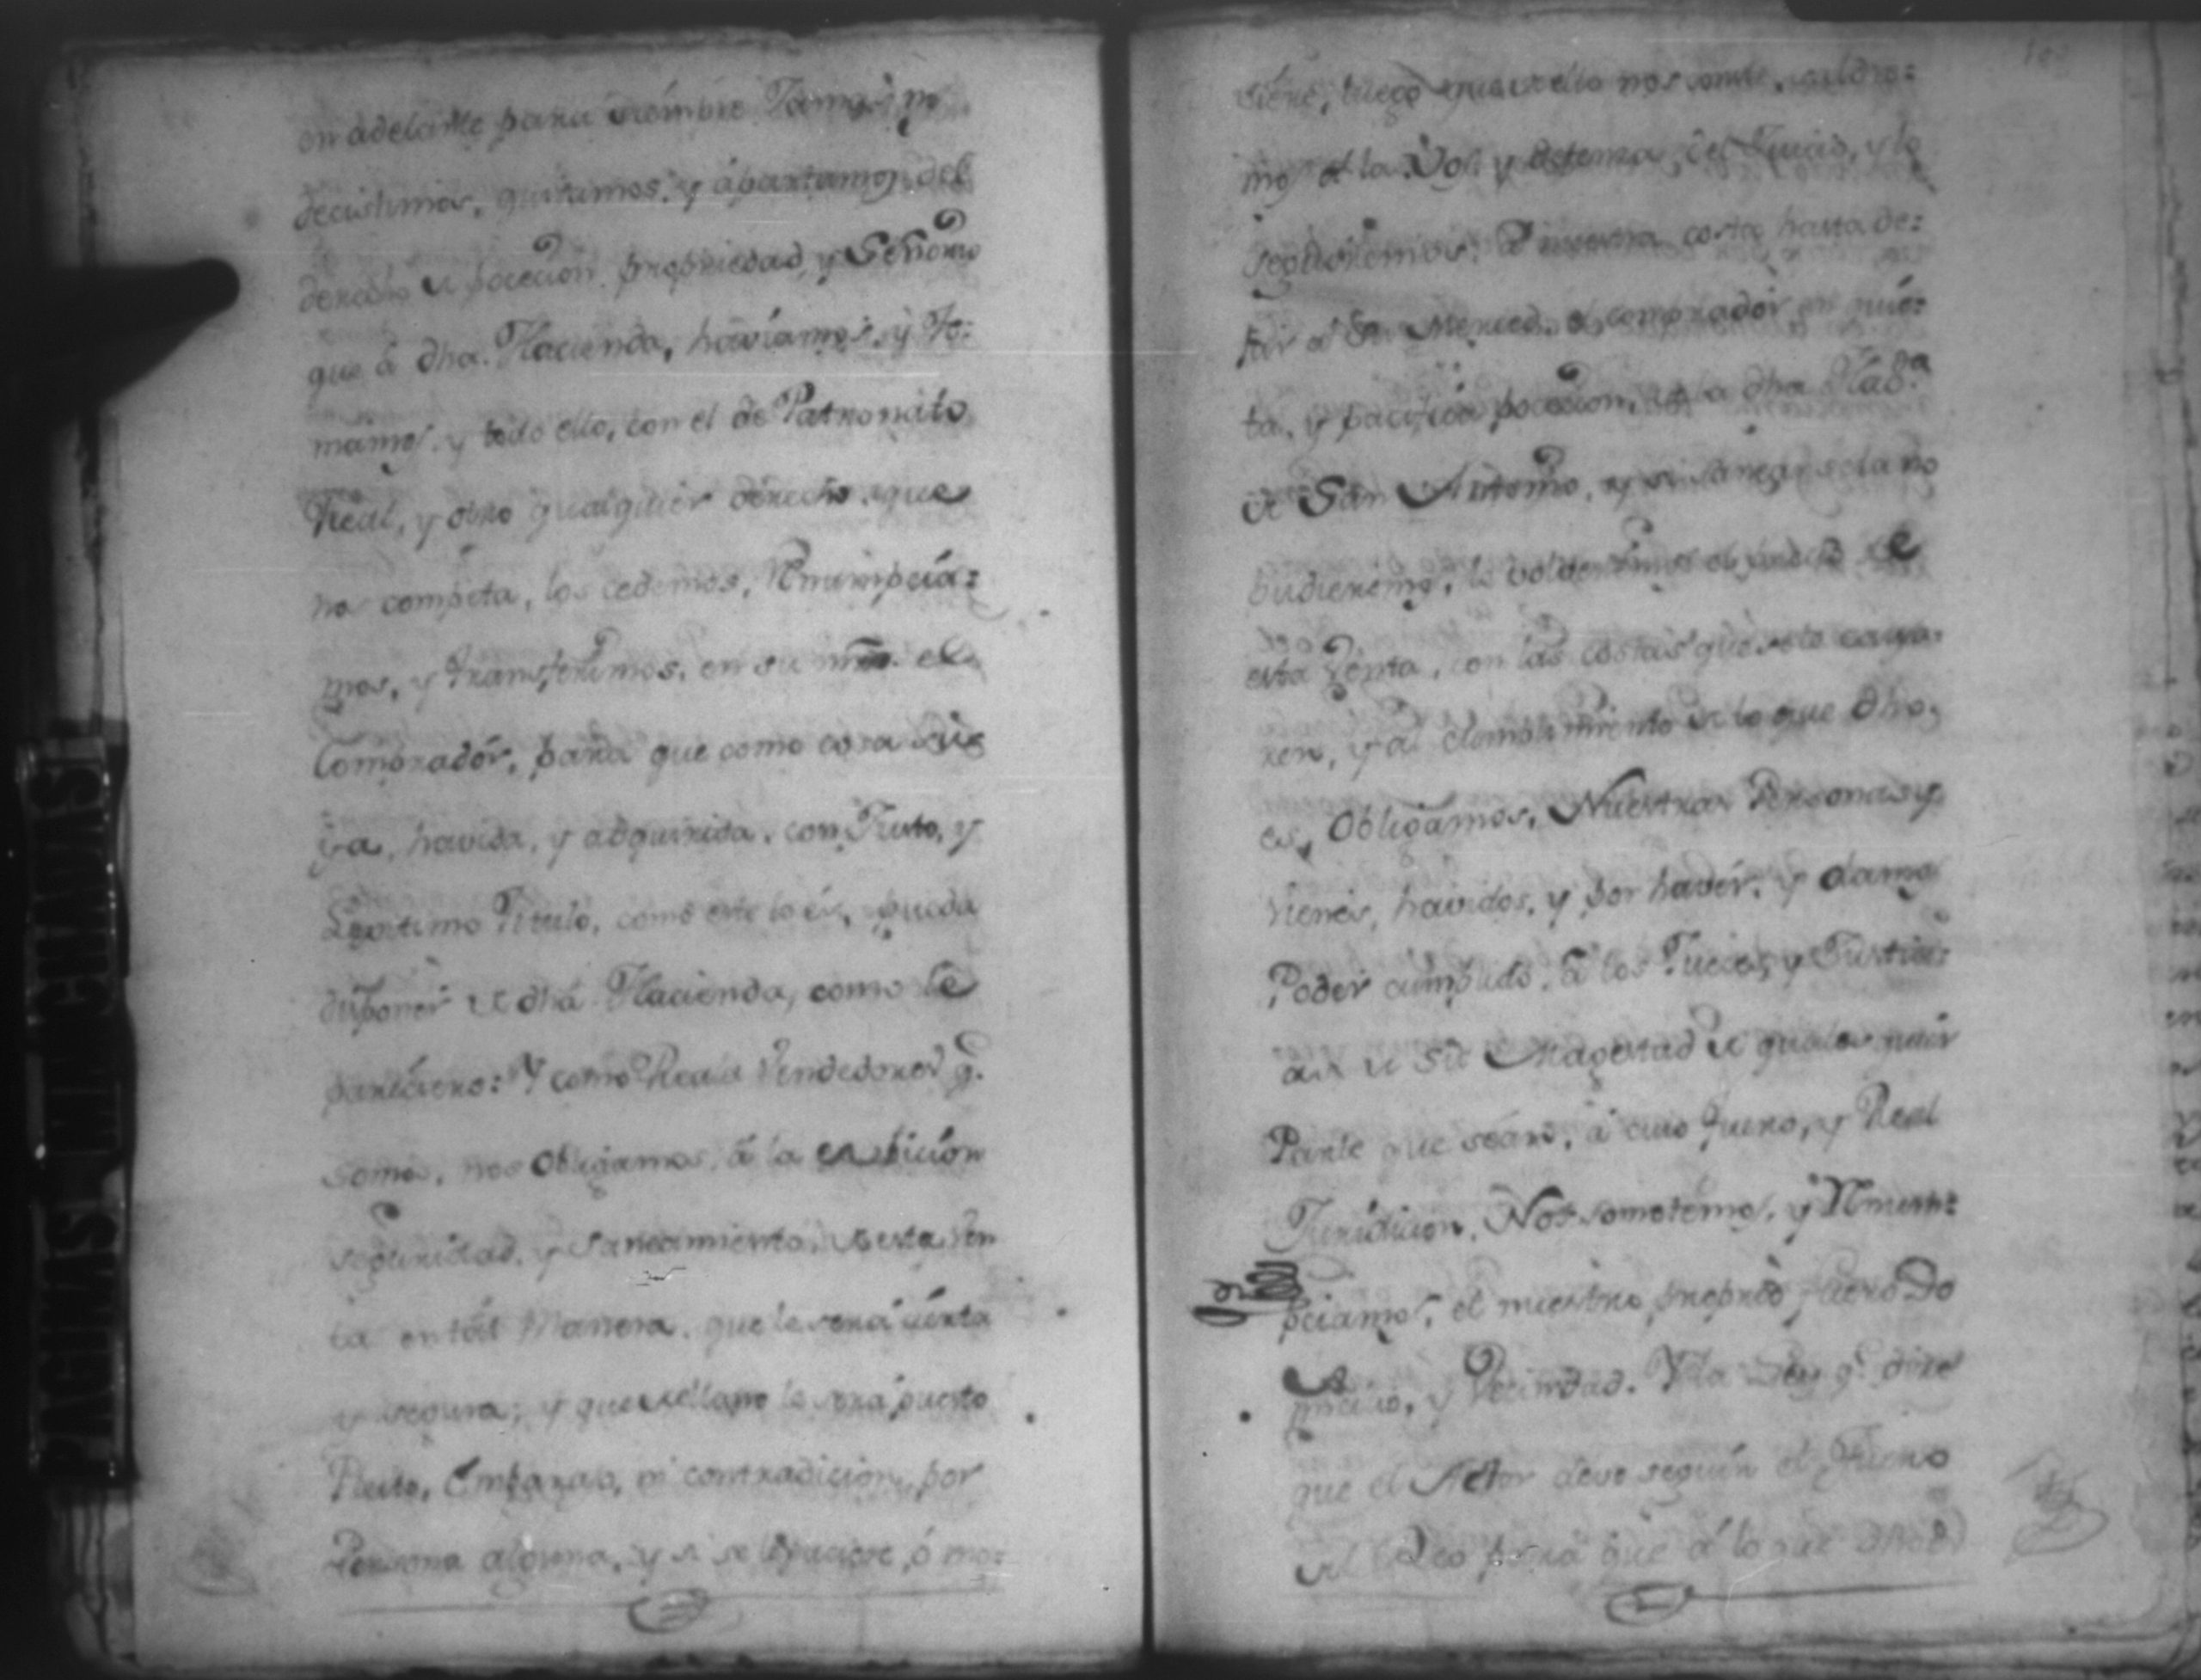 en adelante para siempre Jamas nos
decistimos, quitamos, y ápartamos del
derecho de pocecion propriedad, y Señorio
que á dha. Hacienda, haviamos, y te=
niamos, y todo ello, con el de Patronato
Real, y otro qualquier derecho que
nos competa, los cedemos, Renunpcia=
mos, y transferimos, en su mro. el
Comprador, para que como cosa su
ya, havida, y adquirida, con Justo, y
Legitimo Titulo, como este lo és, pueda
disponer de dha Hacienda, como le
pareciere: Y como Reales Vendedores q.
somos, nos Obligamos, á la evicion
seguridad, y saneamiento, de esta Ven
ta en tál Manera, que le será cierta
y segura, y que á ello no le será puesto
Pleito, Embarazo, ni contradicion, por
Persona alguna, y si se le pusiere, ó mo=
biere, luego que de ello nos conste, saldre=
mos á la Voz y defensa, del Juicio, y lo
seguiremos, á nuestra costa hasta de=
jar á Su Merced, el comprador en quie=
ta, y pacifica pocecion, de la dha Hasda.
de San Antonio, y si saneársela no
pudieremos, le volveremos el precio de
esta Venta, con las costas que se le causa=
ren, y al cumplimiento de lo que dho.
es, Obligamos, Nuestras Personas y
vienes, havidos, y por havér, y damos
Poder cumplido, á los Jueces, y Justici=
as de Su Magestad de quales quier
Parte que seán, á cuio fuero, y Real
Jurisdicion, Nos sometemos, y Renun=
pciamos, el nuestro proprio fuero Do
micilio, y Vecindad. Y la Ley q. dice
que el Actor deve seguir el Fuero
del Reo para que á lo que dho es